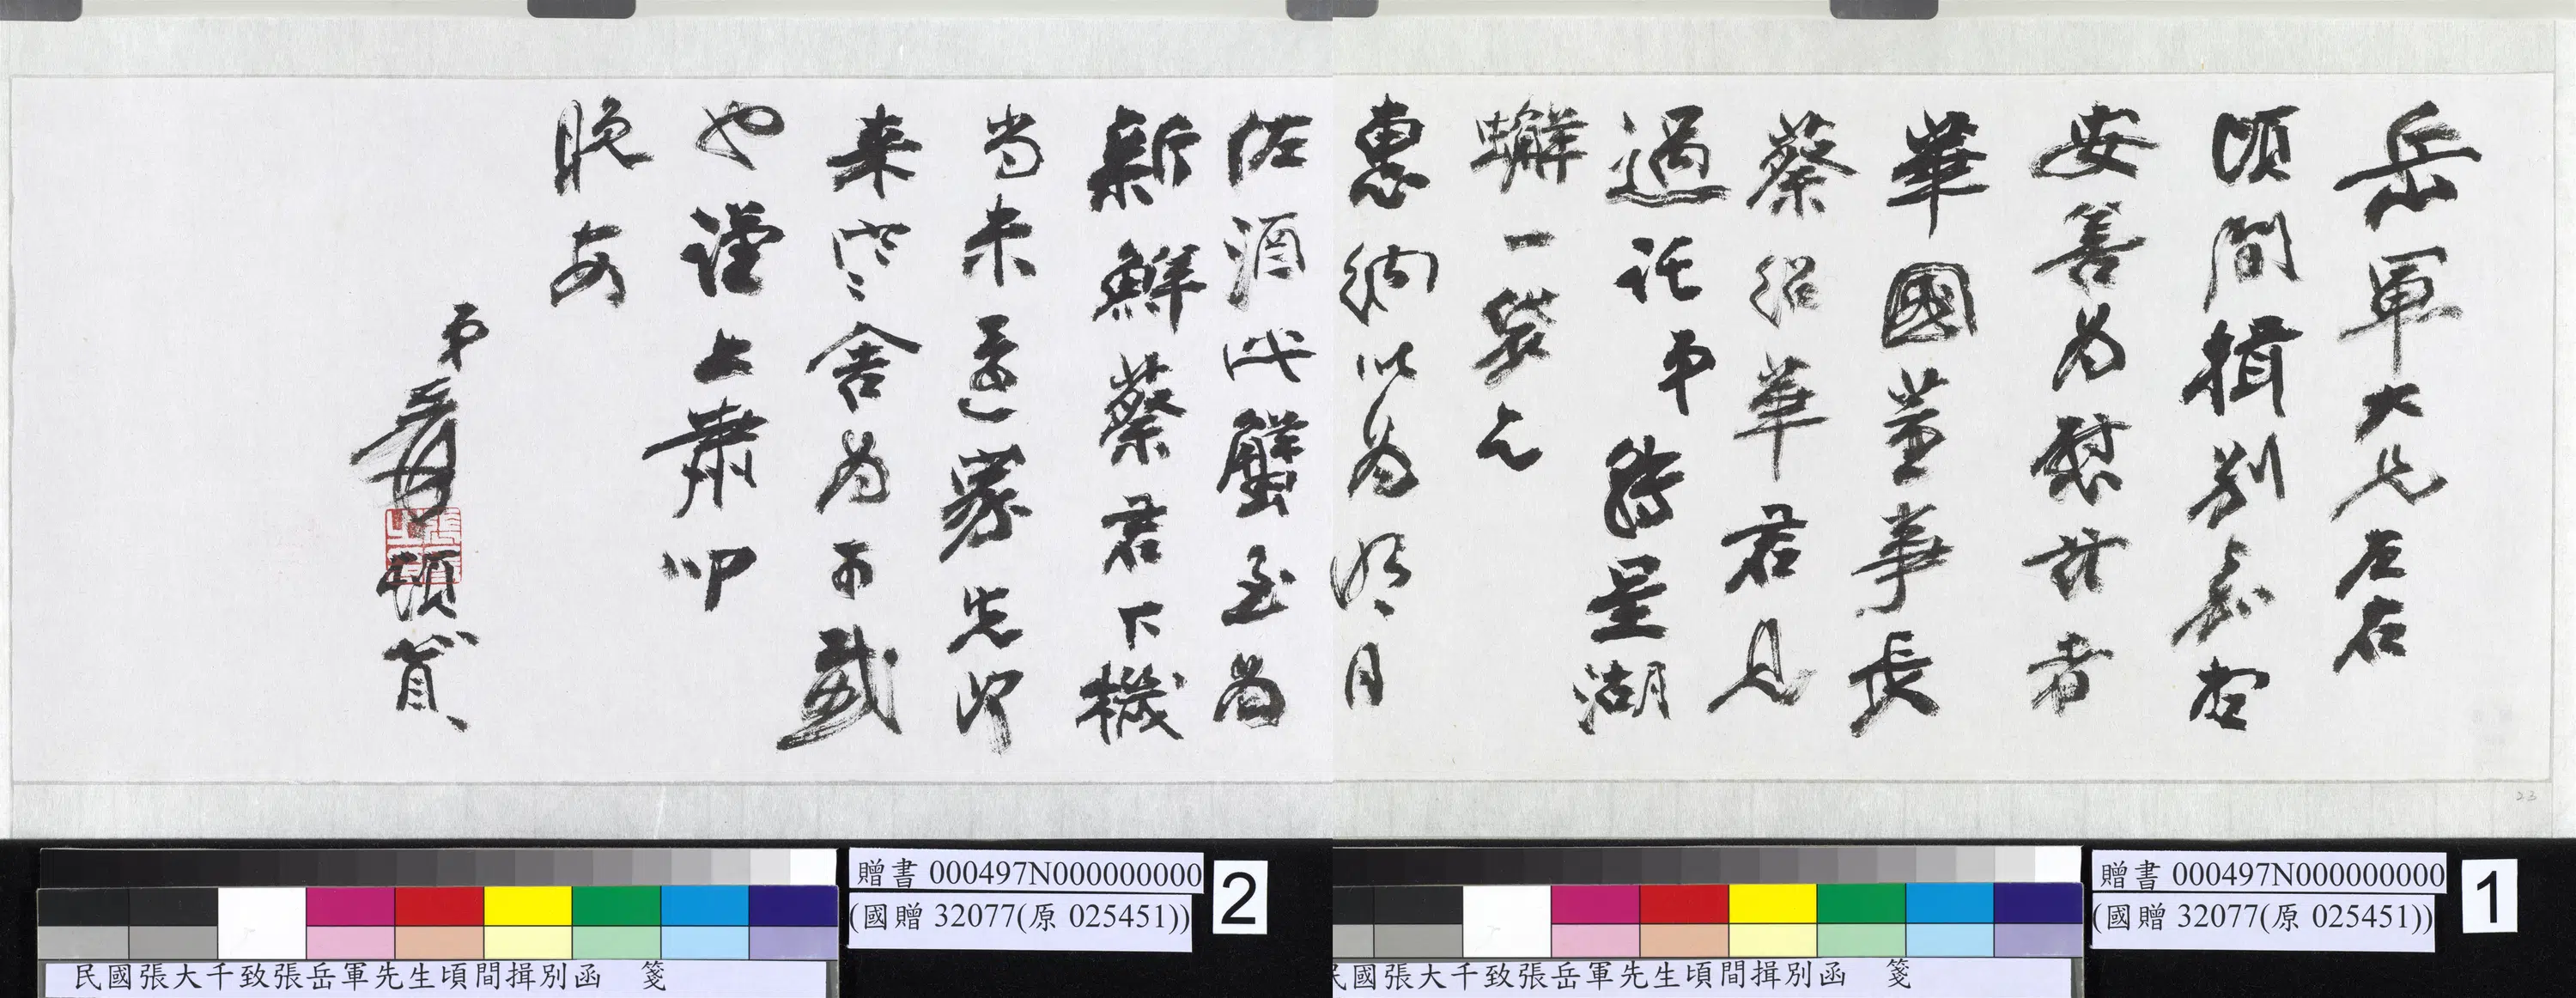 岳軍大兄左右
頃間揖別
安善為慰茲者
華國董事長
蔡紹華君見
過託弟轉呈湖
蠏一袋乞
惠納以為月
佐酒此蟹至為
新鮮蔡君下機
尚未還家先即
來寒舍為可感
也謹上肅叩
晚安
弟爰頓首
贈書 000497N000000000
(國贈 32077(原 025451))
1
民國張大千致張岳軍先生頃間揖別函 箋
贈書 000497N000000000
(國贈 32077(原 025451))
2
民國張大千致張岳軍先生頃間揖別函 箋
23